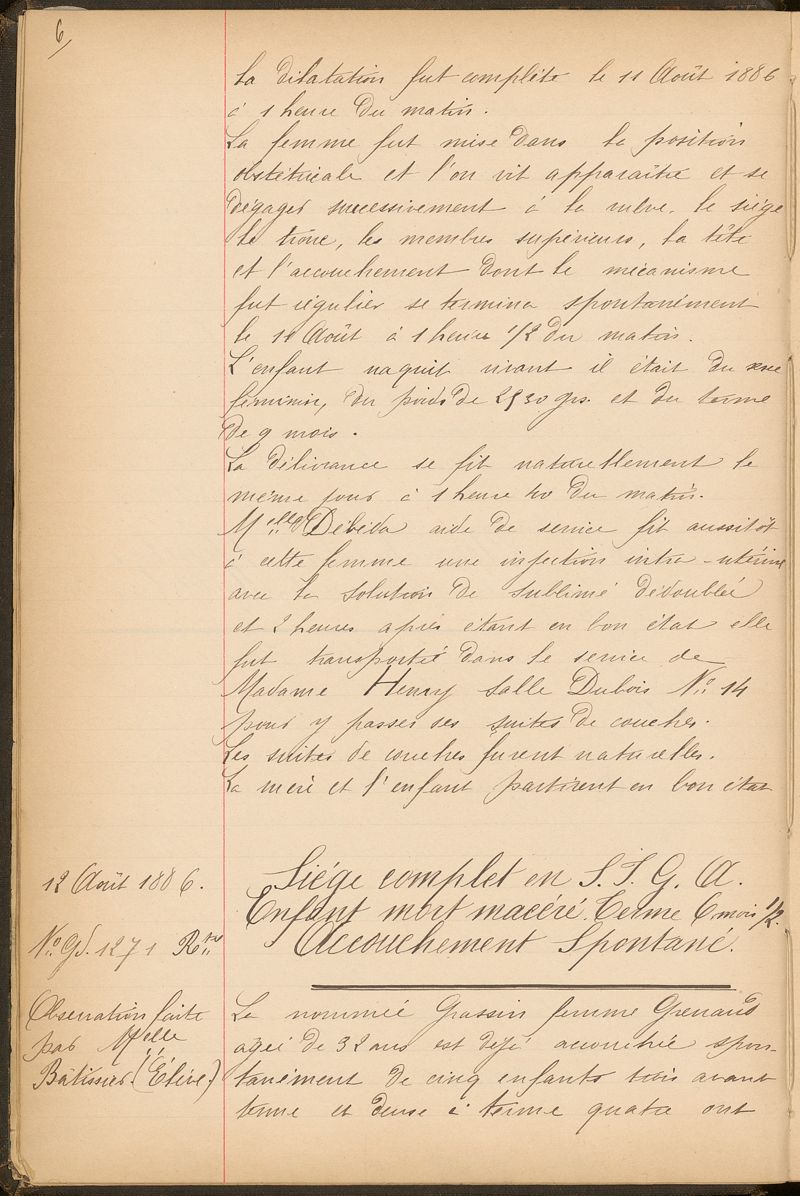 6
La dilatation fut complète le 11 Août 1886
à 1 heure du matin.
La femme fut mise dans la position
obstétricale et l'on vit apparaître et se
dégager successivement à la vulve, le siège
le tronc, les membres supérieurs, la tête
et l'accouchement dont le mécanisme
fut régulier se termina spontanément
le 11 Août à 1 heure 1/2 du matin.
L'enfant naquit vivant il était du sexe
féminin, du poids de 2930 grs. et du terme
de 9 mois.
La délivrance se fit naturellement le
même jour à 1 heure 40 du matin.
Melle Debéda aide de service fit aussitôt
à cette femme une injection intra-utérine
avec la solution de sublimé dédoublée
et 2 heures après étant en bon état elle
fut transportée dans le service de
Madame Henry salle Dubois No 14
pour y passer ses suites de couches.
Les suites de couches furent naturelles.
La mère et l'enfant partirent en bon état
12 Août 1886.
No Gd. 1271 Rtre
Observation faite
par Melle
Batissier (Élève)
Siége complet en S.I.G.A.
Enfant mort macéré. Terme 6 mois 1/2.
Accouchement Spontané.
La nommée Grassin femme Grenaud
agée de 32 ans est déjà accouchée spon-
tanément de cinq enfants trois avant
terme et deux à terme quatre ont